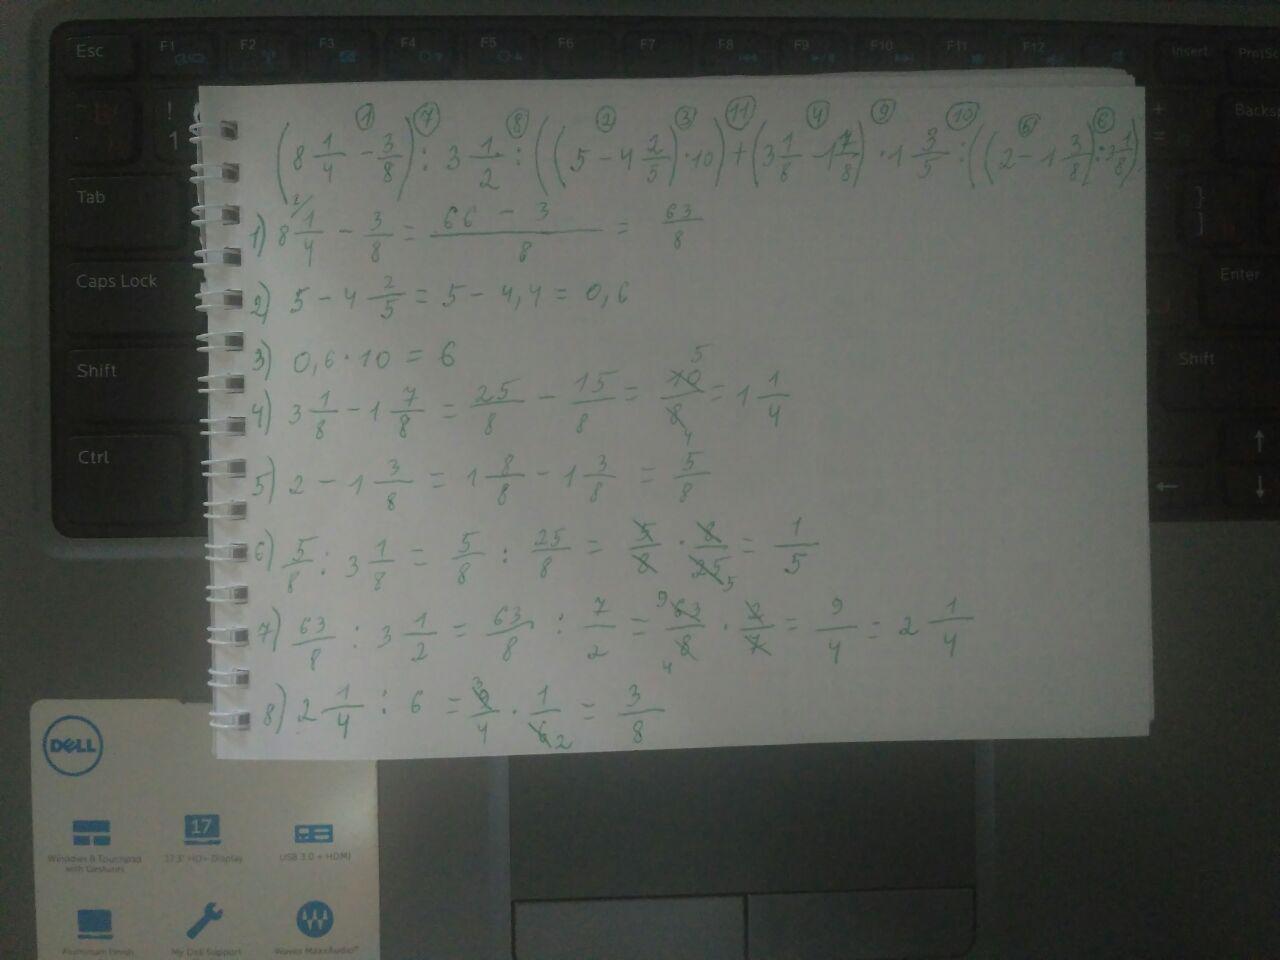 Esc F1 F2 F3 F4 F5 F6 F7 F8 F9 F10 F11 F12 Insert
! 1
Backs
Tab
Caps Lock
Enter
Shift
Shift
Ctrl
① ⑦ ⑧ ② ③ ⑪ ④ ⑨ ⑩ ⑤ ⑥
(8 1/4 - 3/8) : 3 1/2 : ((5 - 4 2/5) · 10) + (3 1/8 - 1 7/8) · 1 3/5 : ((2 - 1 3/8) : 3 1/8)
1) 8 1/4 - 3/8 = (66 - 3)/8 = 63/8
2) 5 - 4 2/5 = 5 - 4,4 = 0,6
3) 0,6 · 10 = 6
4) 3 1/8 - 1 7/8 = 25/8 - 15/8 = 10/8 = 1 1/4
5) 2 - 1 3/8 = 1 8/8 - 1 3/8 = 5/8
6) 5/8 : 3 1/8 = 5/8 : 25/8 = 5/8 · 8/25 = 1/5
7) 63/8 : 3 1/2 = 63/8 : 7/2 = 63/8 · 2/7 = 9/4 = 2 1/4
8) 2 1/4 : 6 = 9/4 · 1/6 = 3/8
DELL
Windows 8 Touchpad
with Gestures
17
17.3" HD+ Display
USB 3.0 + HDMI
Aluminum Finish
My Dell Support
Waves MaxxAudio